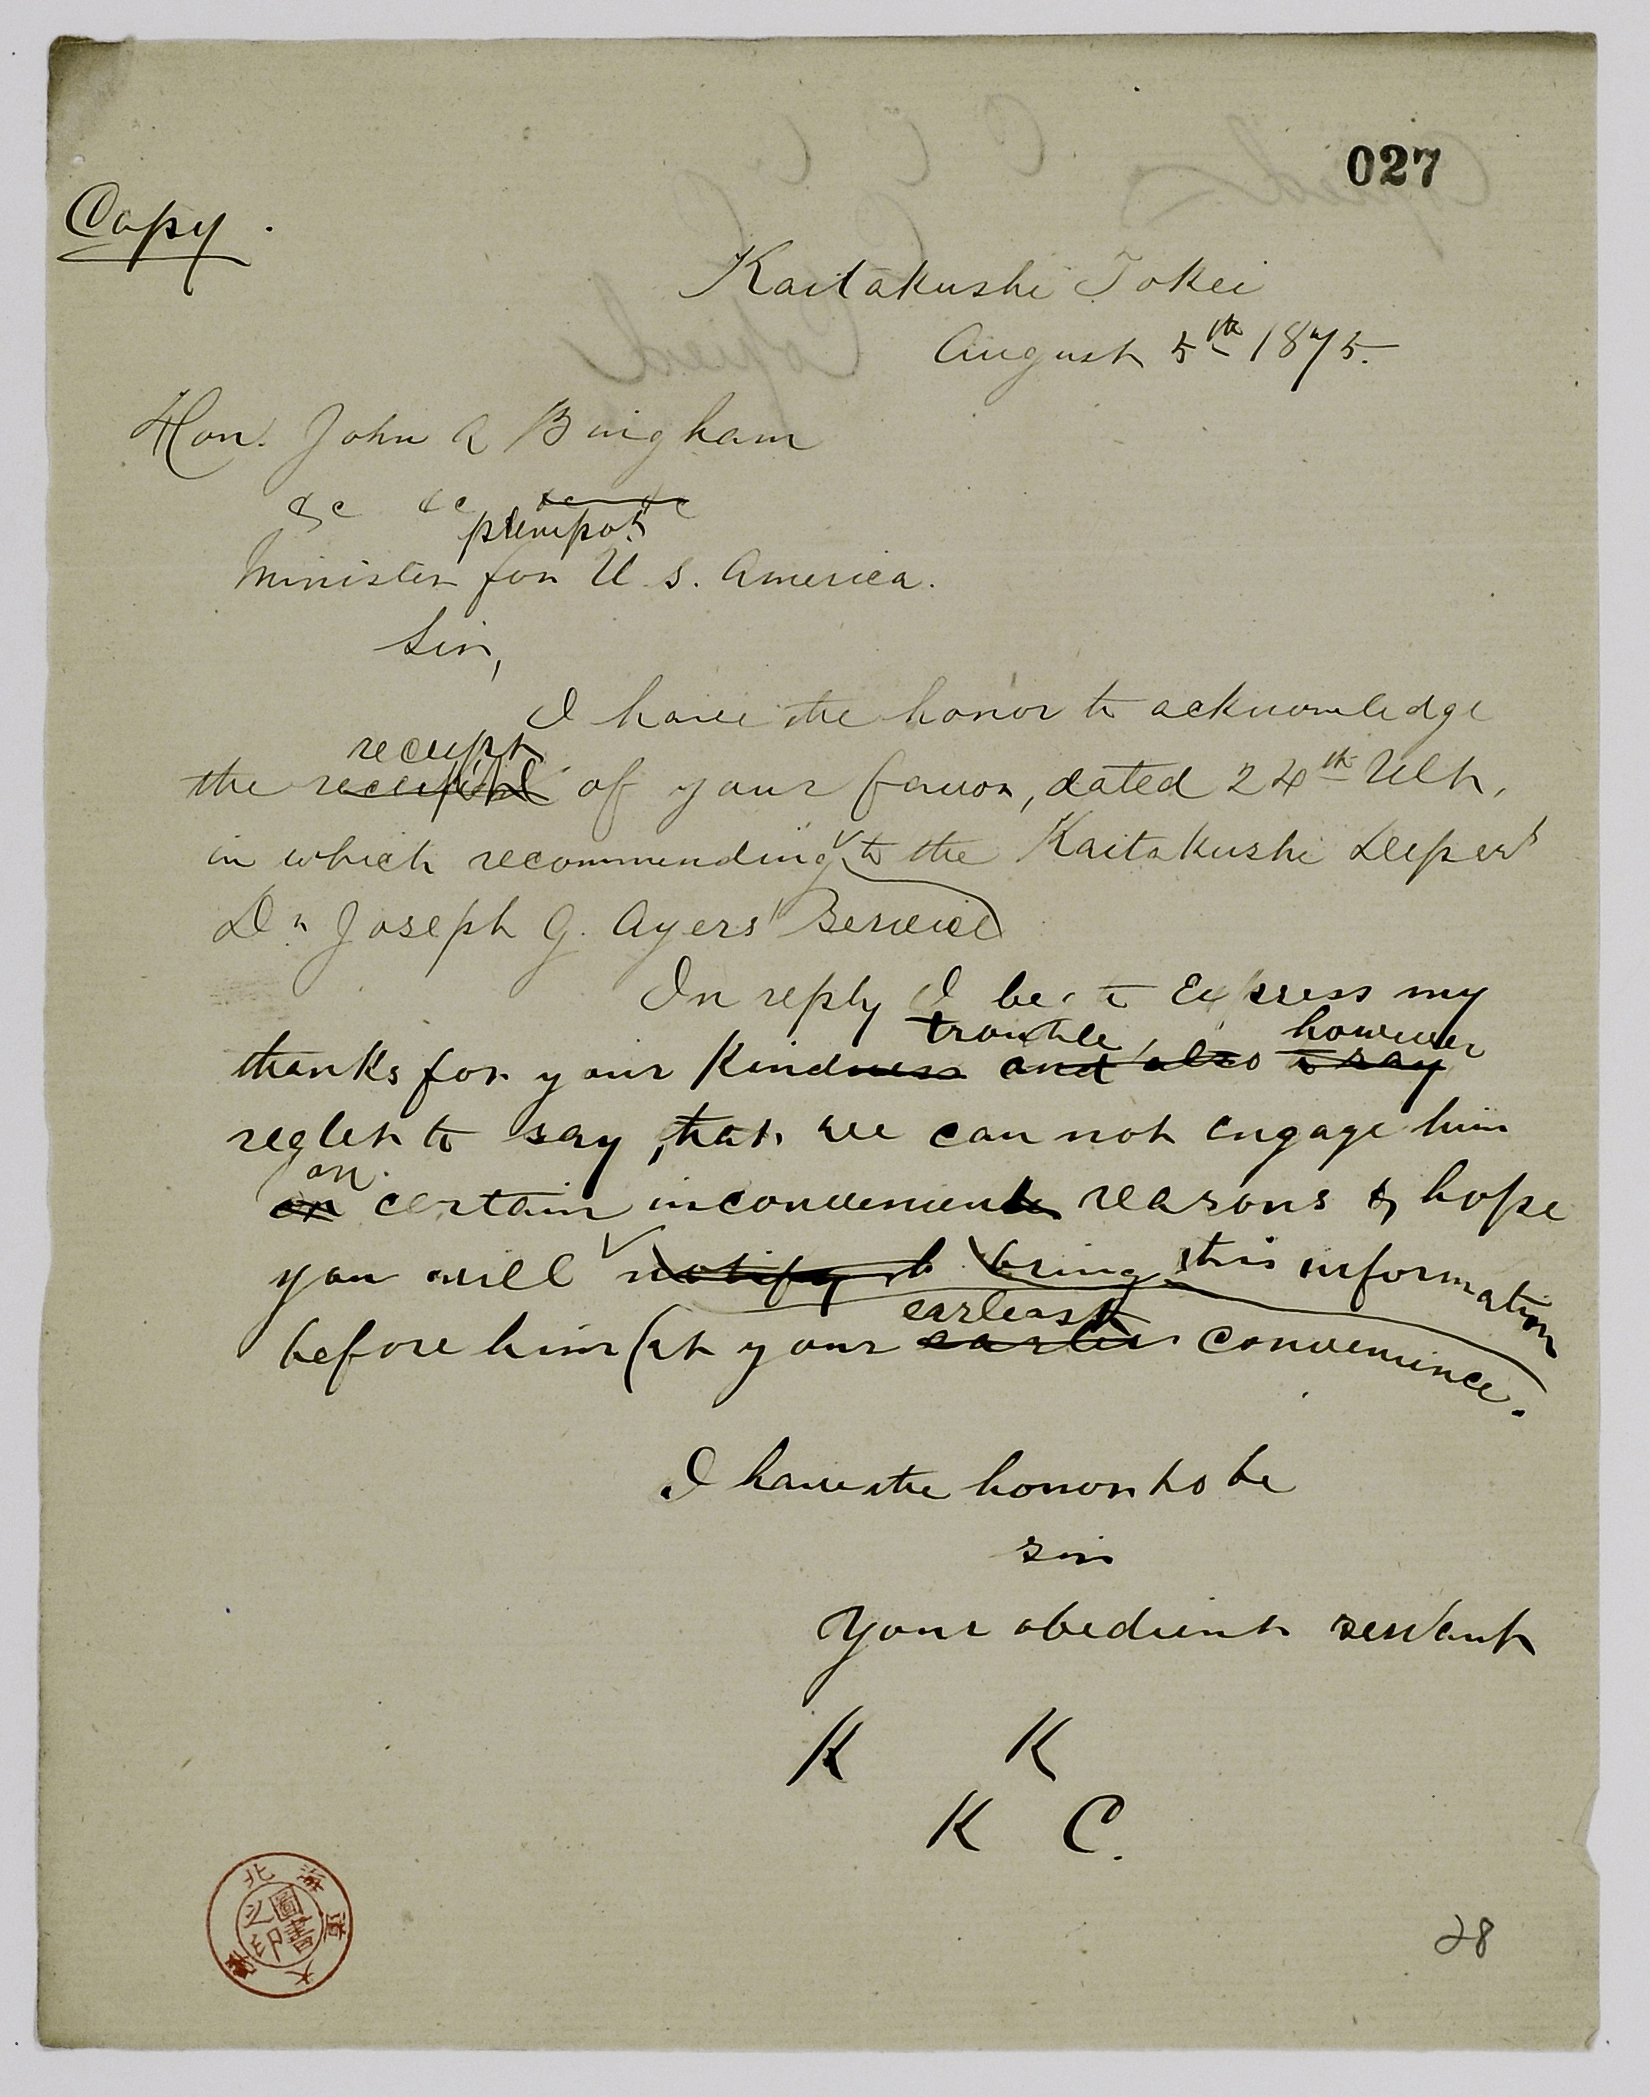 027
Copy.
Kaitakushi Tokei
August 5th 1875.
Hon. John A Bingham
&c &c &c &c
plenipot.
Minister for U. S. America.
Sir,
I have the honor to acknowledge
receipt
the of your favor, dated 24th Ult,
in which recommending to the Kaitakushi Depart
Dr Joseph G. Ayers' Service
In reply I beg to Express my
trouble, however
thanks for your Kindness and also to say
reglet to say, that we can not engage him
on
on certain inconvenient reasons & hope
you will notify to bring this information
earleast
before him (at your earlier convenience.
I have the honor to be
sir
Your obedient servant
K K
K C.
北海道大學
圖書之印
28